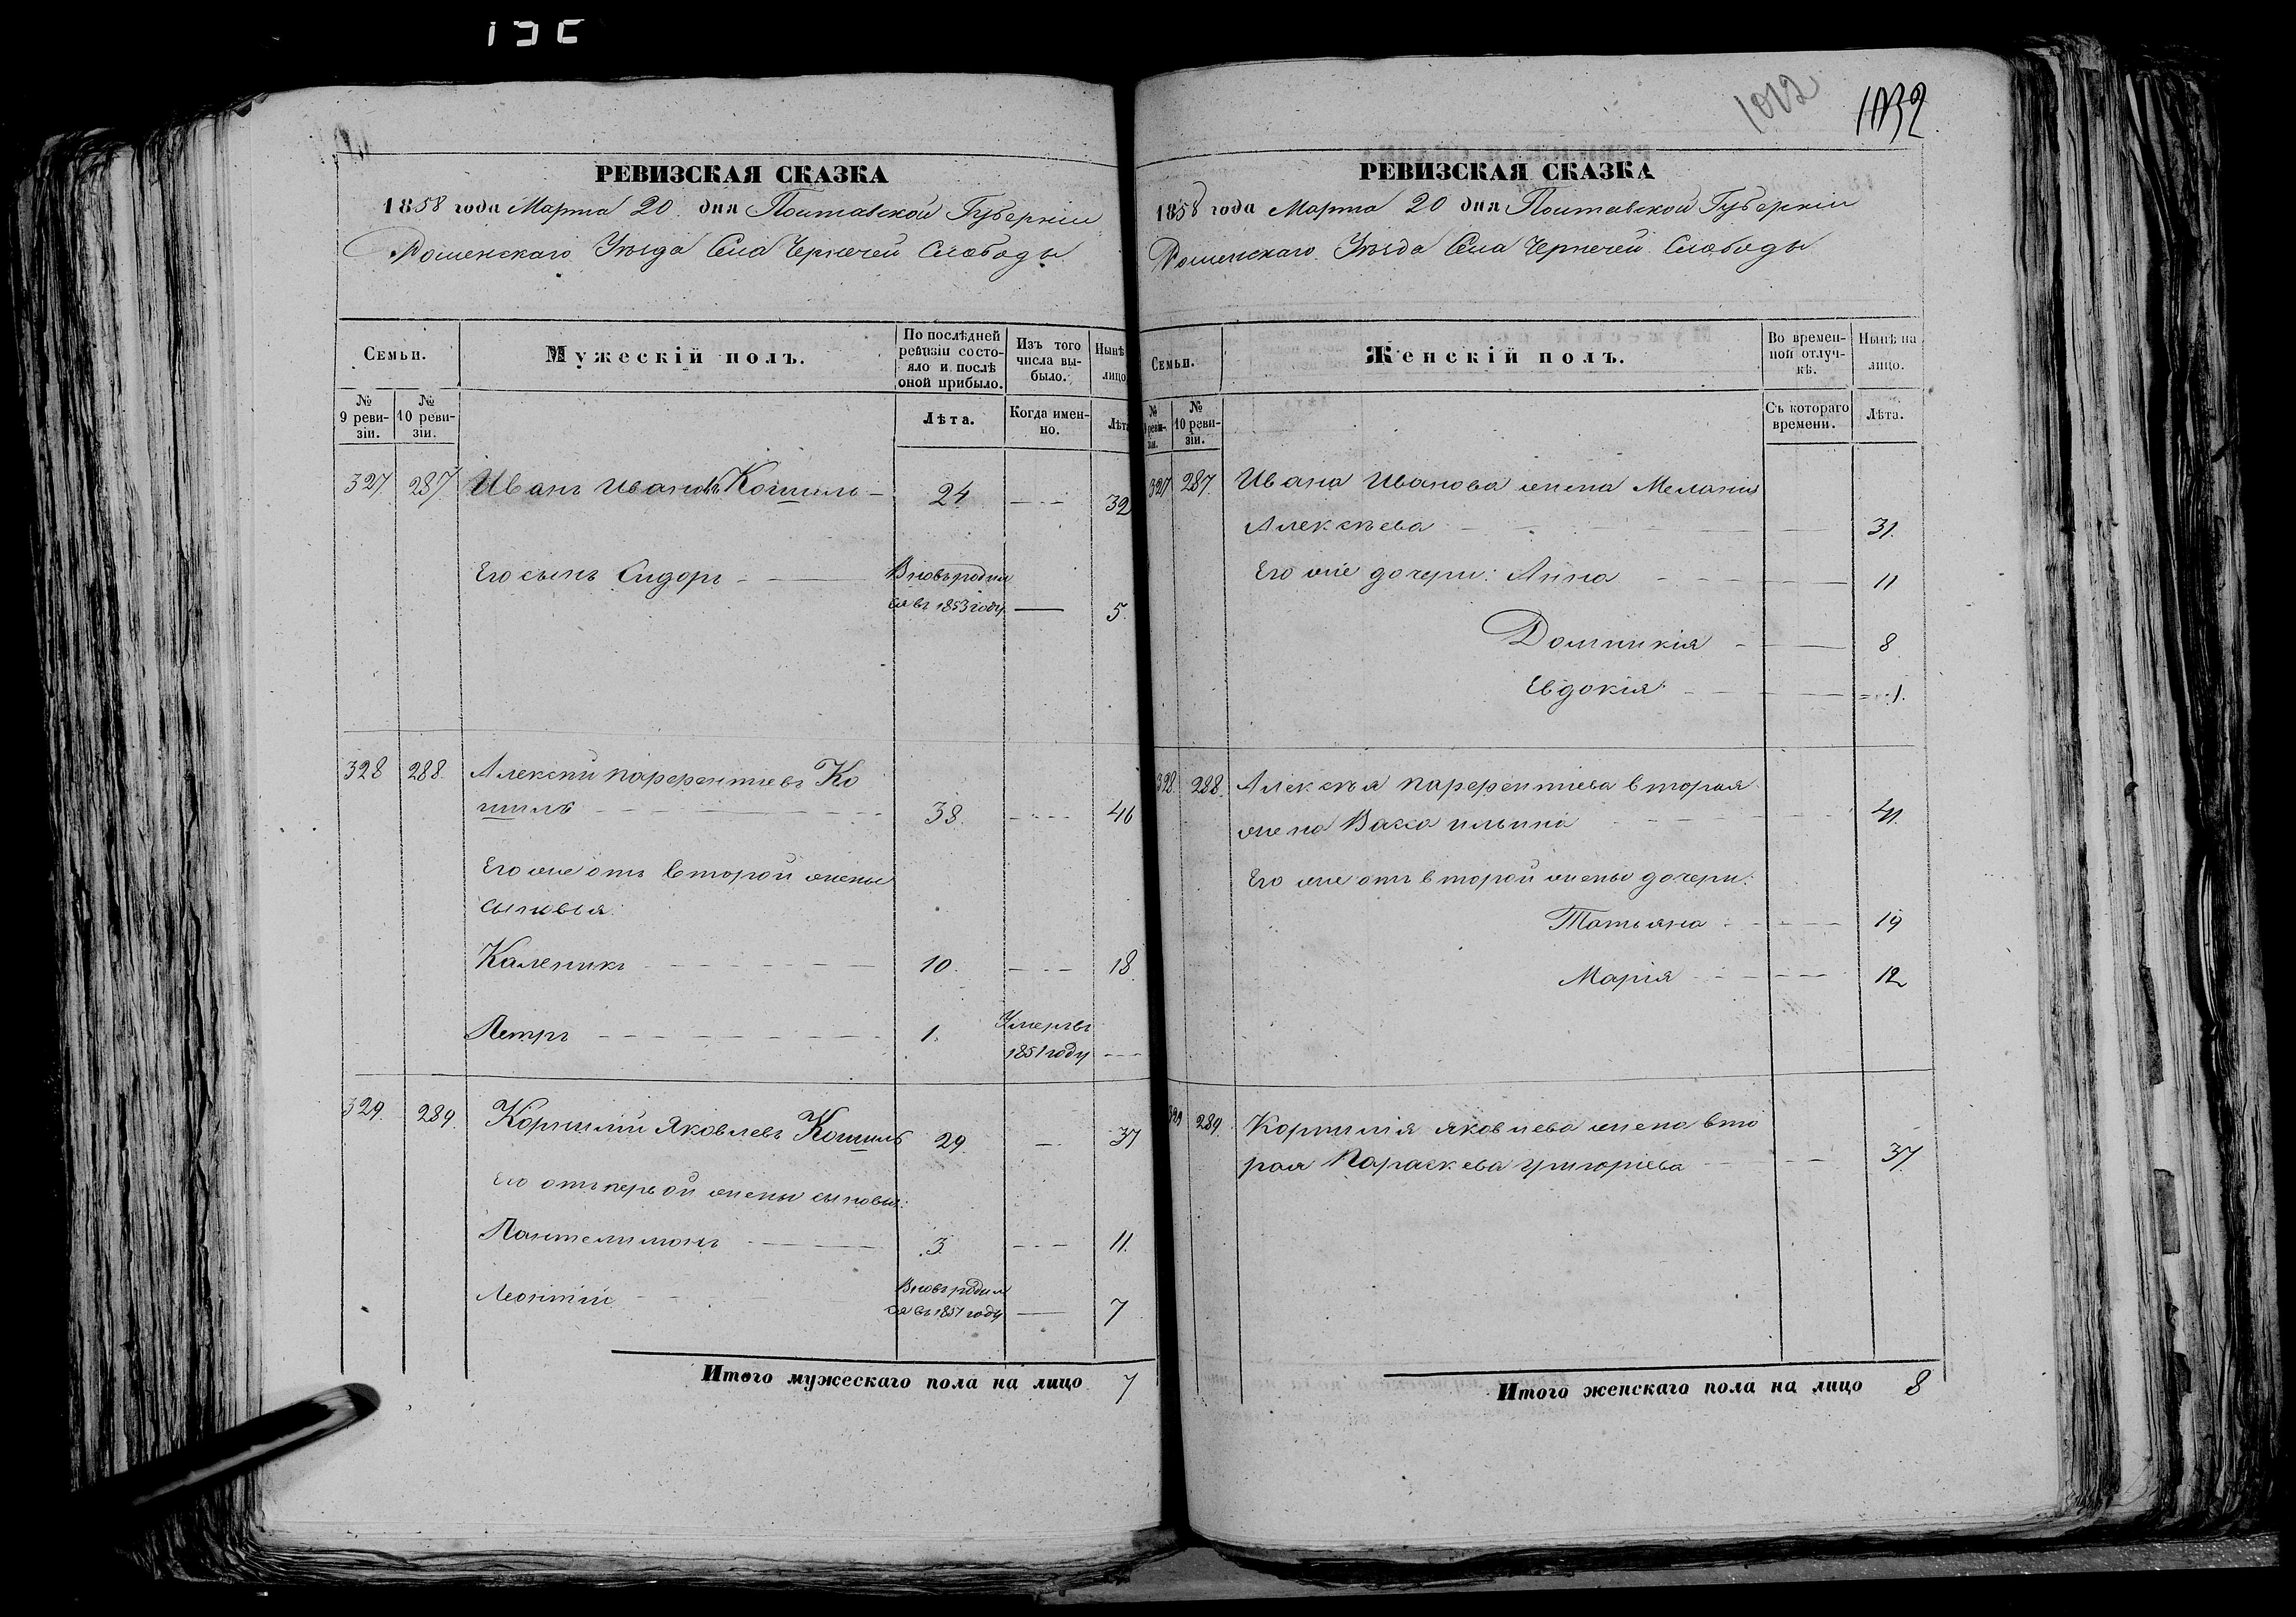 1012
1032
РЕВИЗСКАЯ СКАЗКА
1858 года Марта 20 дня Полтавской Губерніи
Роменскаго Уѣзда Села Чернечей Слободы
Семьи.
Мужескій полъ.
По послѣдней ревизіи состояло и послѣ оной прибыло.
Изъ того числа выбыло.
Нынѣ лицо
№ 9 ревизіи.
№ 10 ревизіи.
Лѣта.
Когда именно.
Лѣта
327. 287. Иванъ Ивановъ Кошиль 24 32
Его сынъ Сидоръ Вновь родил
ся въ 1853 году 5.
328 288. Алексѣй Парфентіевъ Ко
шиль 38. 46
Его же отъ второй жены
сыновья:
Каленикъ 10. 18.
Петръ 1. Умеръ въ
1851 году
329. 289. Корнилій Яковлевъ Кошиль 29. 37
Его отъ первой жены сыновья:
Пантелимонъ 3. 11.
Леонтій Вновь родил
ся въ 1851 году 7
Итого мужескаго пола на лицо 7
РЕВИЗСКАЯ СКАЗКА
1858 года Марта 20 дня Полтавской Губерніи
Роменскаго Уѣзда Села Чернечей Слободы
Семьи.
Женскій полъ.
Во временной отлучкѣ.
Нынѣ на лицо.
№ 9 ревизіи.
№ 10 ревизіи.
Съ котораго времени.
Лѣта.
327 287. Ивана Иванова жена Меланія
Алексѣева 31.
Его же дочери: Анна 11
Домникія 8
Евдокія 1.
328. 288. Алексѣя Парфентіева вторая
жена Васса Ильина 41.
Его же отъ второй жены дочери:
Татьяна 19
Марія 12
329 289. Корнилія Яковлева жена вто
рая Параскева Григоріева 37.
Итого женскаго пола на лицо 8